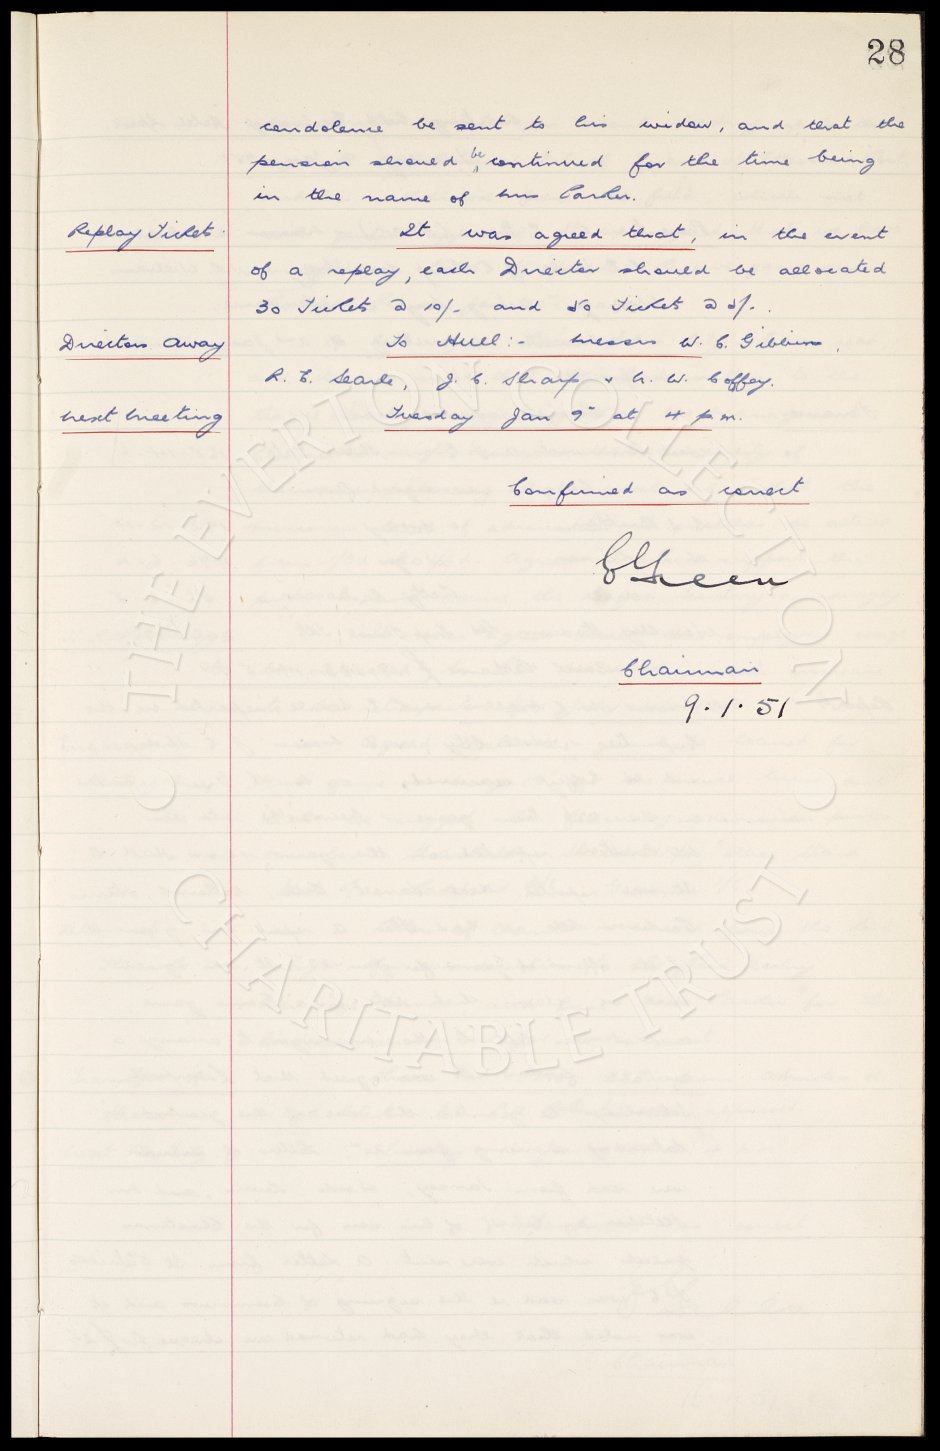 28
condolence be sent to his widow, and that the
pension should be continued for the time being
in the name of Mrs Parker.
Replay Tickets. It was agreed that, in the event
of a replay, each Director should be allocated
30 Tickets @ 10/- and 50 Tickets @ 5/-.
Directors Away To Hull:- Messrs W. C. Gibbins,
R. E. Searle, J. C. Sharp & N. W. Coffey.
Next Meeting Tuesday Jan 9th at 4 p.m.
Confirmed as correct
E Green
Chairman
9.1.51
THE EVERTON COLLECTION
CHARITABLE TRUST